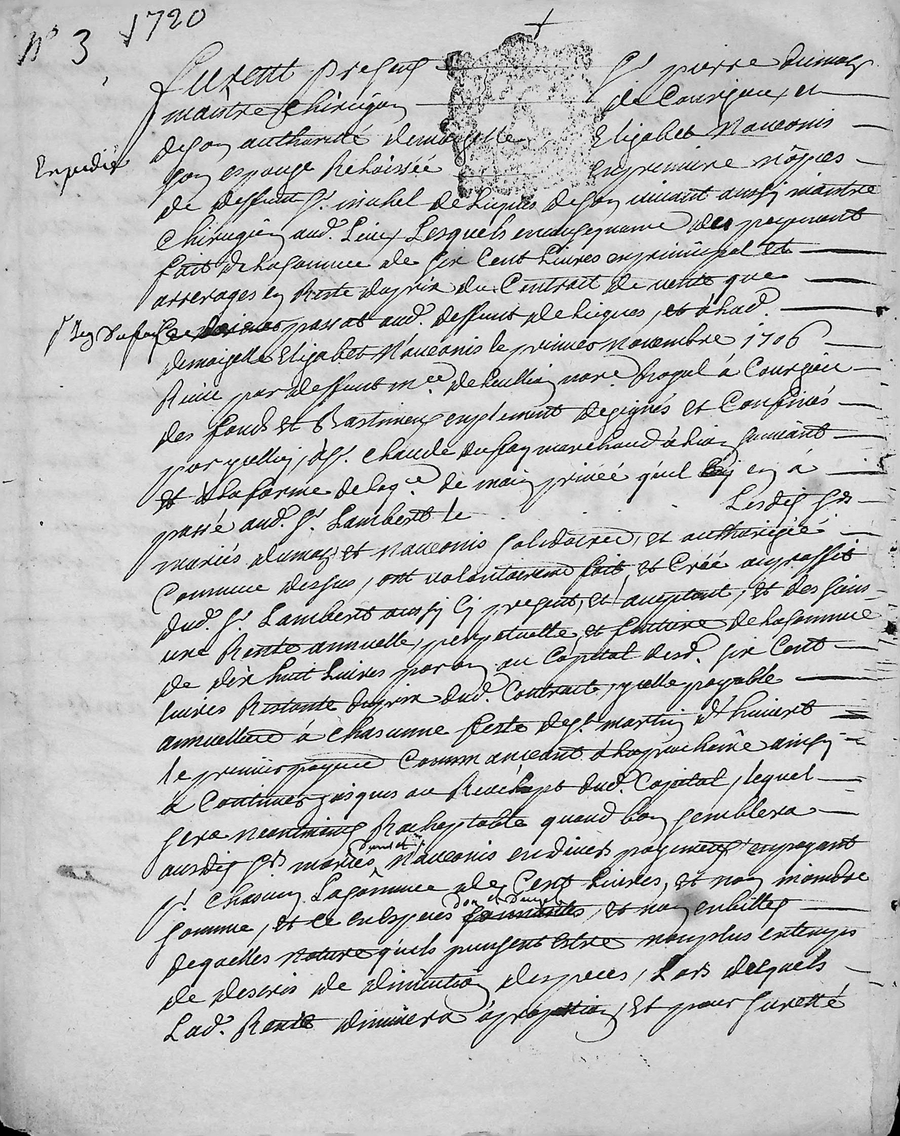 N° 3 1720
Furent presens Sr pierre dumas
maistre Chirugien de Courzieux et
de son authorité demoizelle Elizabet Nauconis
Expedié
son espouze Relaissée en premiere nopces
de deffunt Sr michel de hieques de son vivant aussy maistre
Chirugien aud. Lieux Lesquels en du payemant
fait de la somme de six Cent Livres en principal et
arrerages en Reste du prix du Contrait de vente que
passat aud. deffunt de hieques, et à lad.
demoizelle Elizabet Nauconis le novembre 1706
Reçeu par deffunt me not. Royal à Courzieu
des fonds et Bastimens amplement dezignés et Confinés
par yceluy, Sr. Claude dufay marchand à
et à la forme de la de main privée quil en à
passé aud. Sr. Lambert le Lesdits Srs
mariés dumas et Nauconis solidaires, et authorizée
Comme dessus, ont volontairement fait, et Créé au proffit
dud. Sr. Lambert aussy Cy present, et aceptant, et des siens
une Rente annuelle, perpetuelle, et fonciere de la somme
de dix huit Livres par an au Capital desd. six Cent
livres Restante du prix dud. Contrait, ycelle payable
annuellement à Chascunne feste de St. martin d'hivert
le premier payement Commanceant à la prochaine ainsy
à Continuer jusques au Reachept dud. Capital, lequel
sera neantmoins Racheptable quand bon semblera
ausdits Srs. mariés dumas et Nauconis en divers payemens en payant
Chascun La somme de Cent Livres, et non moindre
somme, et ce en Espeçes d'or et d'argent, et non en billets
de quelles nature quils puissent Estre non plus en temps
de descris de diminution d'espeçes, Lors desquels
Lad. Rente diminuera à proportion, Et pour sureté